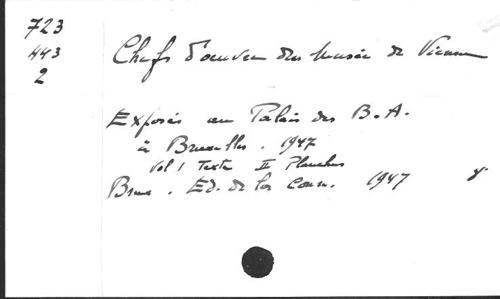 723
443
2
Chefs d'oeuvre des Musée de Vienne
Exposés au Palais des B.A.
à Bruxelles. 1947
Vol I Texte II Planches
Brux. Ed. de la Conn. 1947 8°